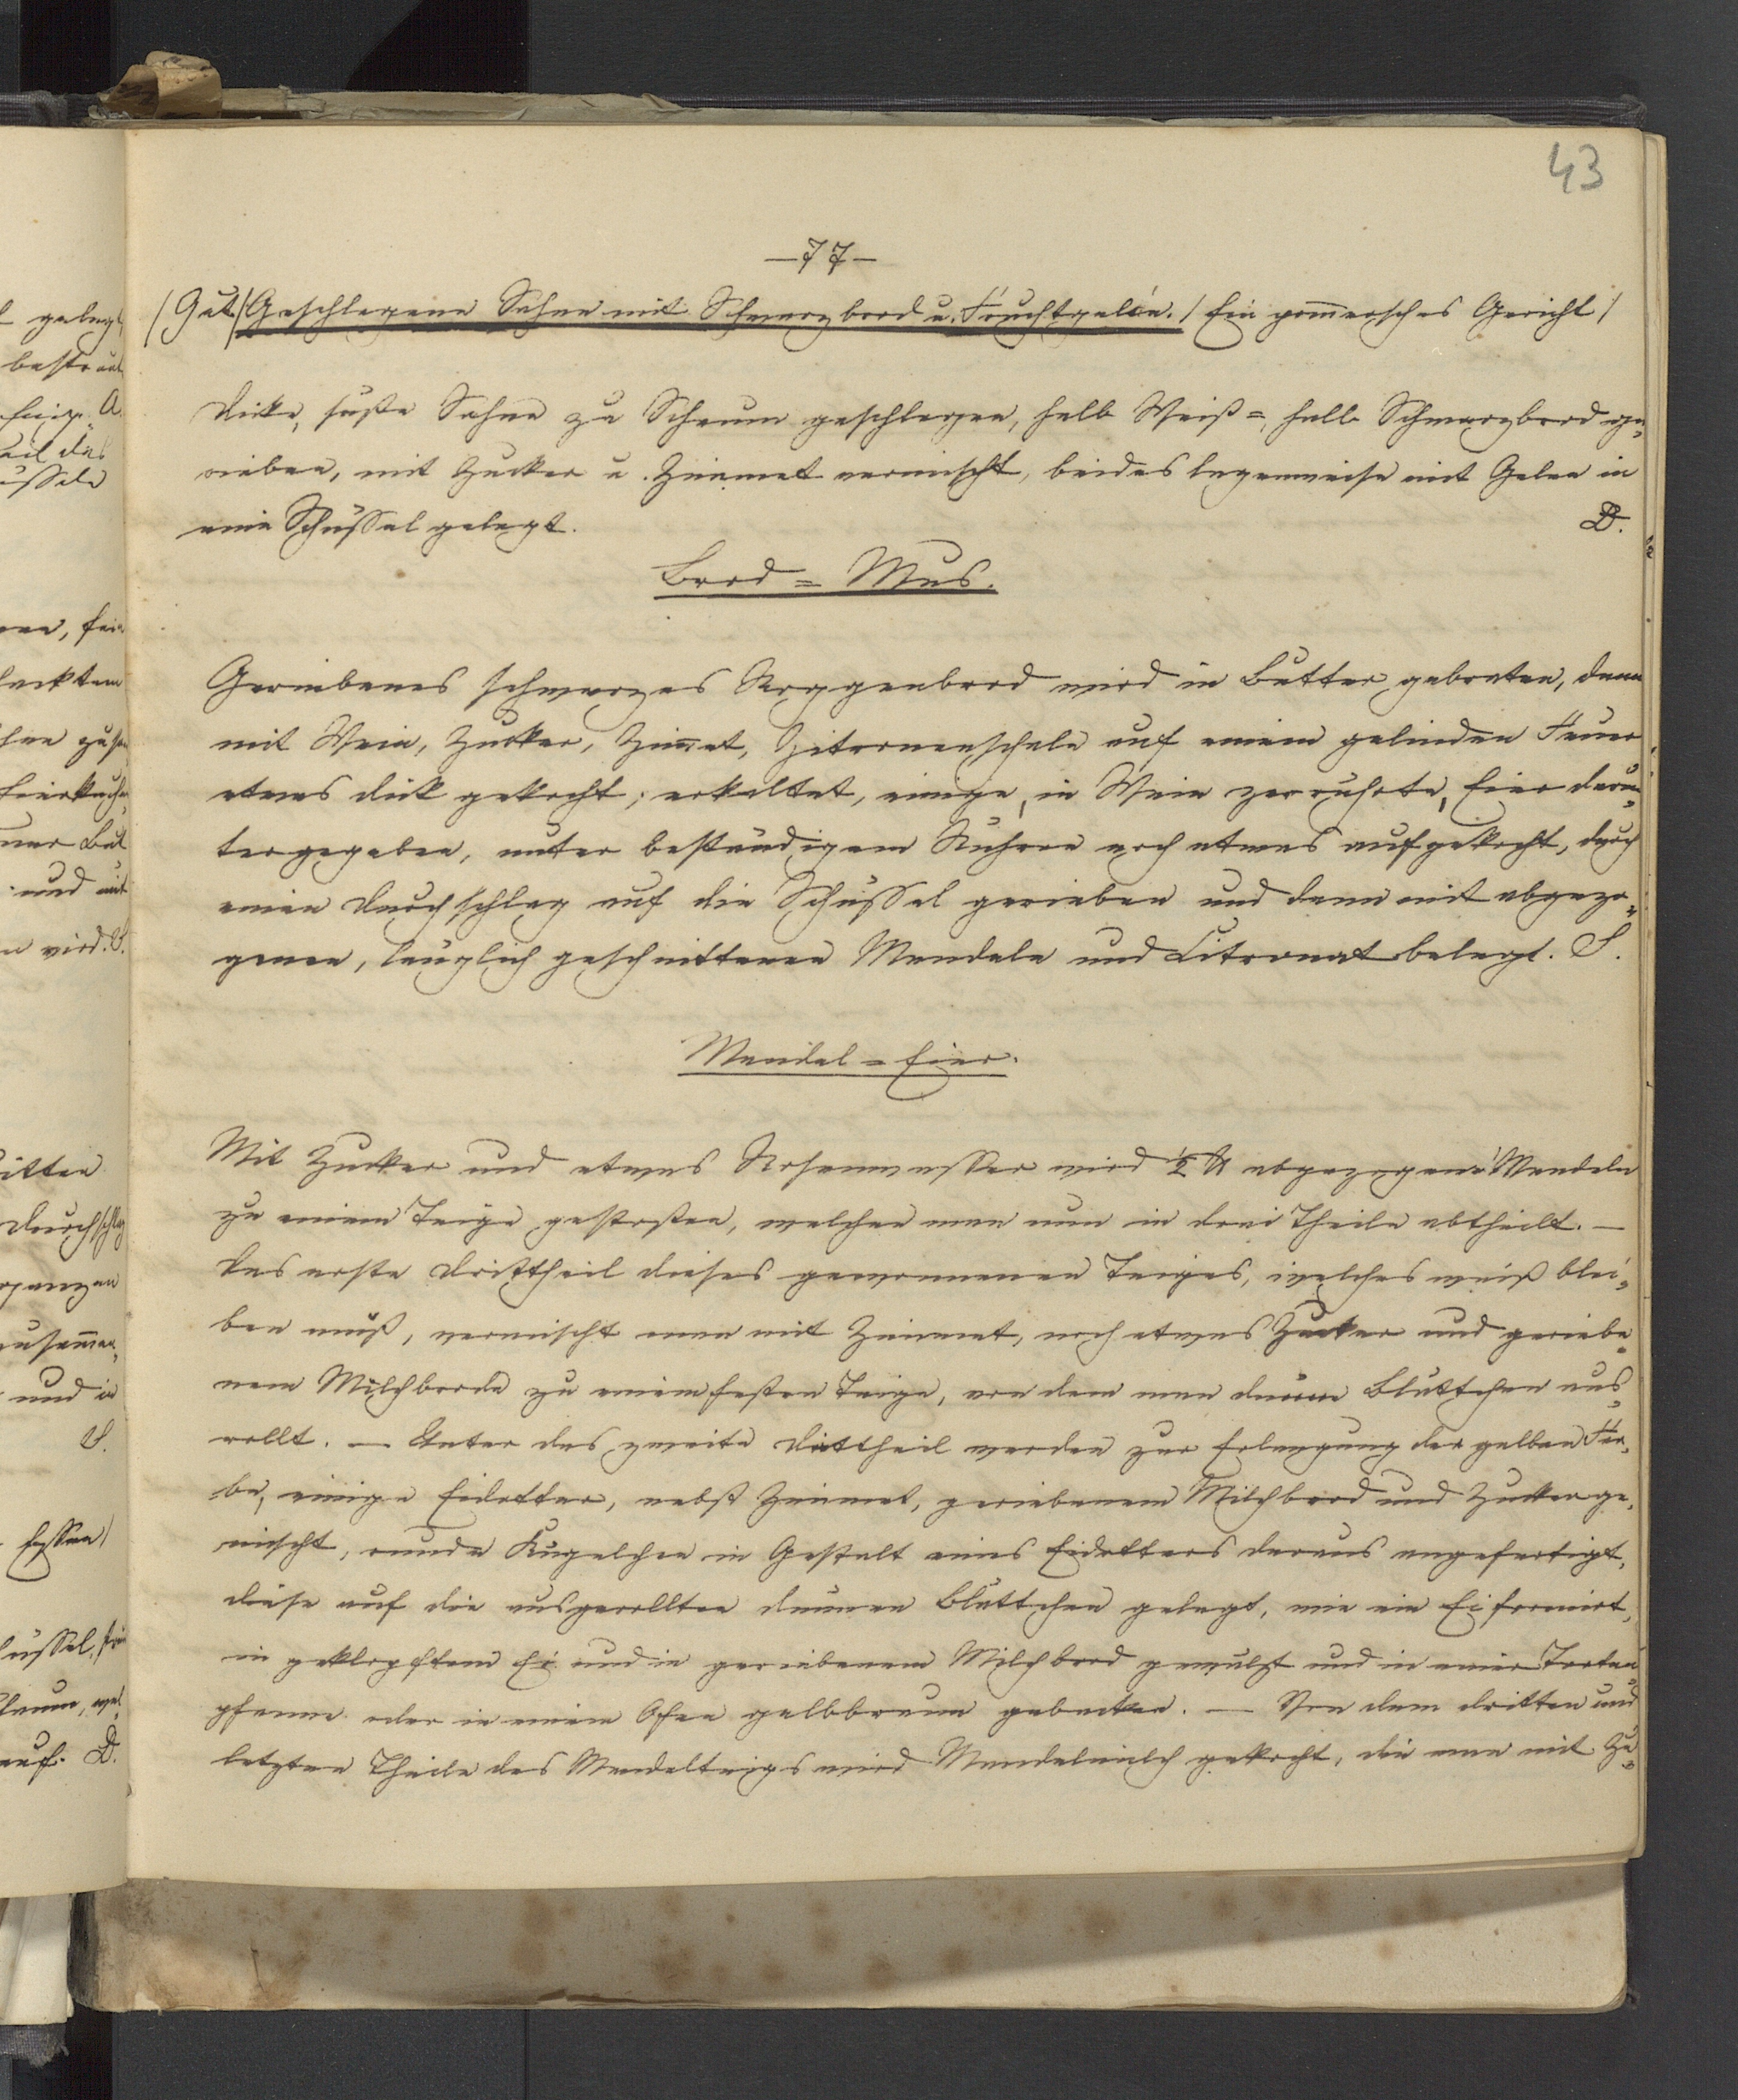 43
—77—
/Gut/ Geschlagene Sahne mit Schwarzbrod u. Fruchtgelée. / Ein pom̄ersches Gericht /
Dicke, süße Sahne zu Schaum geschlagen, halb Weiß=, halb Schwarzbrod ge„
rieben, mit Zucker u. Zimmet vermischt, beides lagenweise mit Gelee in
eine Schüssel gelegt. D.
Brod = Mus.
Geriebenes schwarzes Roggenbrod wird in Butter gebraten, dann
mit Wein, Zucker, Zim̄et, Zitronenschale auf einem gelinden Feuer
etwas dick gekocht; erkaltet, einige, in Wein zerrührte, Eier darun„
tergegeben, unter beständigem Rühren noch etwas aufgekocht, durch
einen Durchschlag auf die Schüssel gerieben und dann mit abgezo„
genen, länglich geschnittenen Mandeln und Citronat belegt. S.
Mandel = Eier.
Mit Zucker und etwas Rosenwasser wird ½ ℔ abgezogene Mandeln
zu einem Teige gestoßen, welchen man nun in drei Theile abtheilt. —
Das erste Dritttheil dieses gewonnenen Teiges, welches weiß blei„
ben muß, vermischt man mit Zimmet, noch etwas Zucker und geriebe„
nem Milchbrode zu einem festen Teige, von dem man dünne Blättchen aus„
rollt. — Unter das zweite Dritttheil werden zur Erlangung der gelben Far„
be, einige Eidotter, nebst Zimmet, geriebenem Milchbrod und Zucker ge„
mischt, runde Kügelchen in Gestalt eines Eidotters daraus angefertigt,
diese auf die ausgerollten dünnen Blättchen gelegt, wie ein Ei formirt,
in geklopftem Ei und in geriebenem Milchbrod gewälzt und in einer Torten„
pfanne oder in einem Ofen gelbbraun gebacken. — Von dem dritten und
letzten Theile des Mandelteigs wird Mandelmilch gekocht, die man mit Zu„